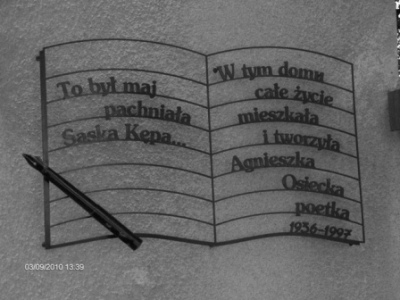 To był maj
pachniała
Saska Kępa...
"W tym domu
całe życie
mieszkała
i tworzyła
Agnieszka
Osiecka
poetka
1936-1997
03/09/2010 13:39